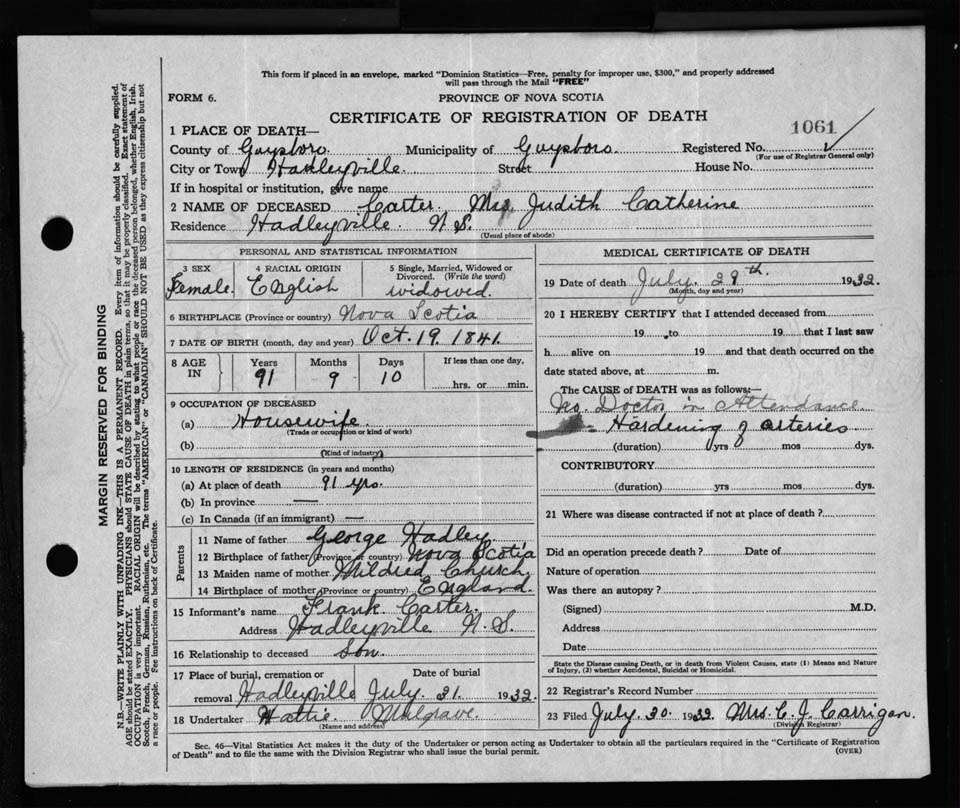 This form if placed in an envelope, marked "Dominion Statistics—Free, penalty for improper use, $300," and properly addressed
will pass through the Mail "FREE"
FORM 6.
PROVINCE OF NOVA SCOTIA
CERTIFICATE OF REGISTRATION OF DEATH
1061
1 PLACE OF DEATH—
County of Guysboro. Municipality of Guysboro. Registered No.
(For use of Registrar General only)
City or Town Hadleyville. Street House No.
If in hospital or institution, give name
2 NAME OF DECEASED Carter. Mrs. Judith Catherine
Residence Hadleyville N.S.
(Usual place of abode)
PERSONAL AND STATISTICAL INFORMATION
3 SEX 4 RACIAL ORIGIN 5 Single, Married, Widowed or
Divorced. (Write the word)
Female. English widowed.
6 BIRTHPLACE (Province or country) Nova Scotia
7 DATE OF BIRTH (month, day and year) Oct. 19. 1841.
8 AGE IN Years Months Days If less than one day,
91 9 10 hrs. or min.
9 OCCUPATION OF DECEASED
(a) Housewife.
(Trade or occupation or kind of work)
(b)
(Kind of industry)
10 LENGTH OF RESIDENCE (in years and months)
(a) At place of death 91 yrs.
(b) In province —
(c) In Canada (if an immigrant) —
Parents
11 Name of father George Hadley.
12 Birthplace of father (Province or country) Nova Scotia
13 Maiden name of mother Mildred Church
14 Birthplace of mother (Province or country) England.
15 Informant's name Frank Carter.
Address Hadleyville N.S.
16 Relationship to deceased Son.
17 Place of burial, cremation or Date of burial
removal Hadleyville July. 31. 1932.
18 Undertaker Hattie Mulgrave.
(Name and address)
MEDICAL CERTIFICATE OF DEATH
19 Date of death July. 29th. 1932.
(Month, day and year)
20 I HEREBY CERTIFY that I attended deceased from
19 , to 19 that I last saw
h alive on 19 and that death occurred on the
date stated above, at m.
The CAUSE of DEATH was as follows:—
No. Doctor in Attendance.
Hardening of arteries
(duration) yrs mos dys.
CONTRIBUTORY
(duration) yrs mos dys.
21 Where was disease contracted if not at place of death?
Did an operation precede death? Date of
Nature of operation
Was there an autopsy?
(Signed) M.D.
Address
Date
State the Disease causing Death, or in death from Violent Causes, state (1) Means and Nature
of Injury, (2) whether Accidental, Suicidal or Homicidal.
22 Registrar's Record Number
23 Filed July. 30. 1932 Mrs. C. J. Carrigan.
(Division Registrar)
Sec. 46—Vital Statistics Act makes it the duty of the Undertaker or person acting as Undertaker to obtain all the particulars required in the "Certificate of Registration
of Death" and to file the same with the Division Registrar who shall issue the burial permit.
(OVER)
MARGIN RESERVED FOR BINDING
N.B.—WRITE PLAINLY WITH UNFADING INK—THIS IS A PERMANENT RECORD. Every item of information should be carefully supplied.
AGE should be stated EXACTLY. PHYSICIANS should STATE CAUSE OF DEATH in plain terms, so that it may be properly classified. Exact statement of
OCCUPATION is very important. RACIAL ORIGIN will be described by stating to what people or race the deceased person belonged, whether English, Irish,
Scotch, French, German, Russian, Ruthenian, etc. The terms "AMERICAN" or "CANADIAN" SHOULD NOT BE USED as they express citizenship but not
a race or people. See instructions on back of Certificate.